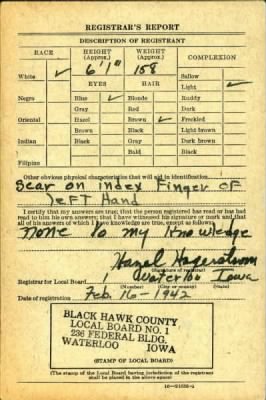 REGISTRAR'S REPORT
DESCRIPTION OF REGISTRANT
RACE HEIGHT (Approx.) WEIGHT (Approx.) COMPLEXION
White ✓ 6'1" 158 Sallow
EYES HAIR Light ✓
Negro Blue ✓ Blonde Ruddy
Gray Red Dark
Oriental Hazel Brown ✓ Freckled
Brown Black Light brown
Indian Black Gray Dark brown
Bald Black
Filipino
Other obvious physical characteristics that will aid in identification
Scar on index Finger OF
left Hand
I certify that my answers are true; that the person registered has read or has had
read to him his own answers; that I have witnessed his signature or mark and that
all of his answers of which I have knowledge are true, except as follows:
None to my Knowledge
Hazel Hagerstrom
(Signature of registrar)
Registrar for Local Board 1 Waterloo Iowa
(Number) (City or county) (State)
Date of registration Feb. 16-1942
BLACK HAWK COUNTY
LOCAL BOARD NO. 1
236 FEDERAL BLDG.
WATERLOO IOWA
(STAMP OF LOCAL BOARD)
(The stamp of the Local Board having jurisdiction of the registrant
shall be placed in the above space)